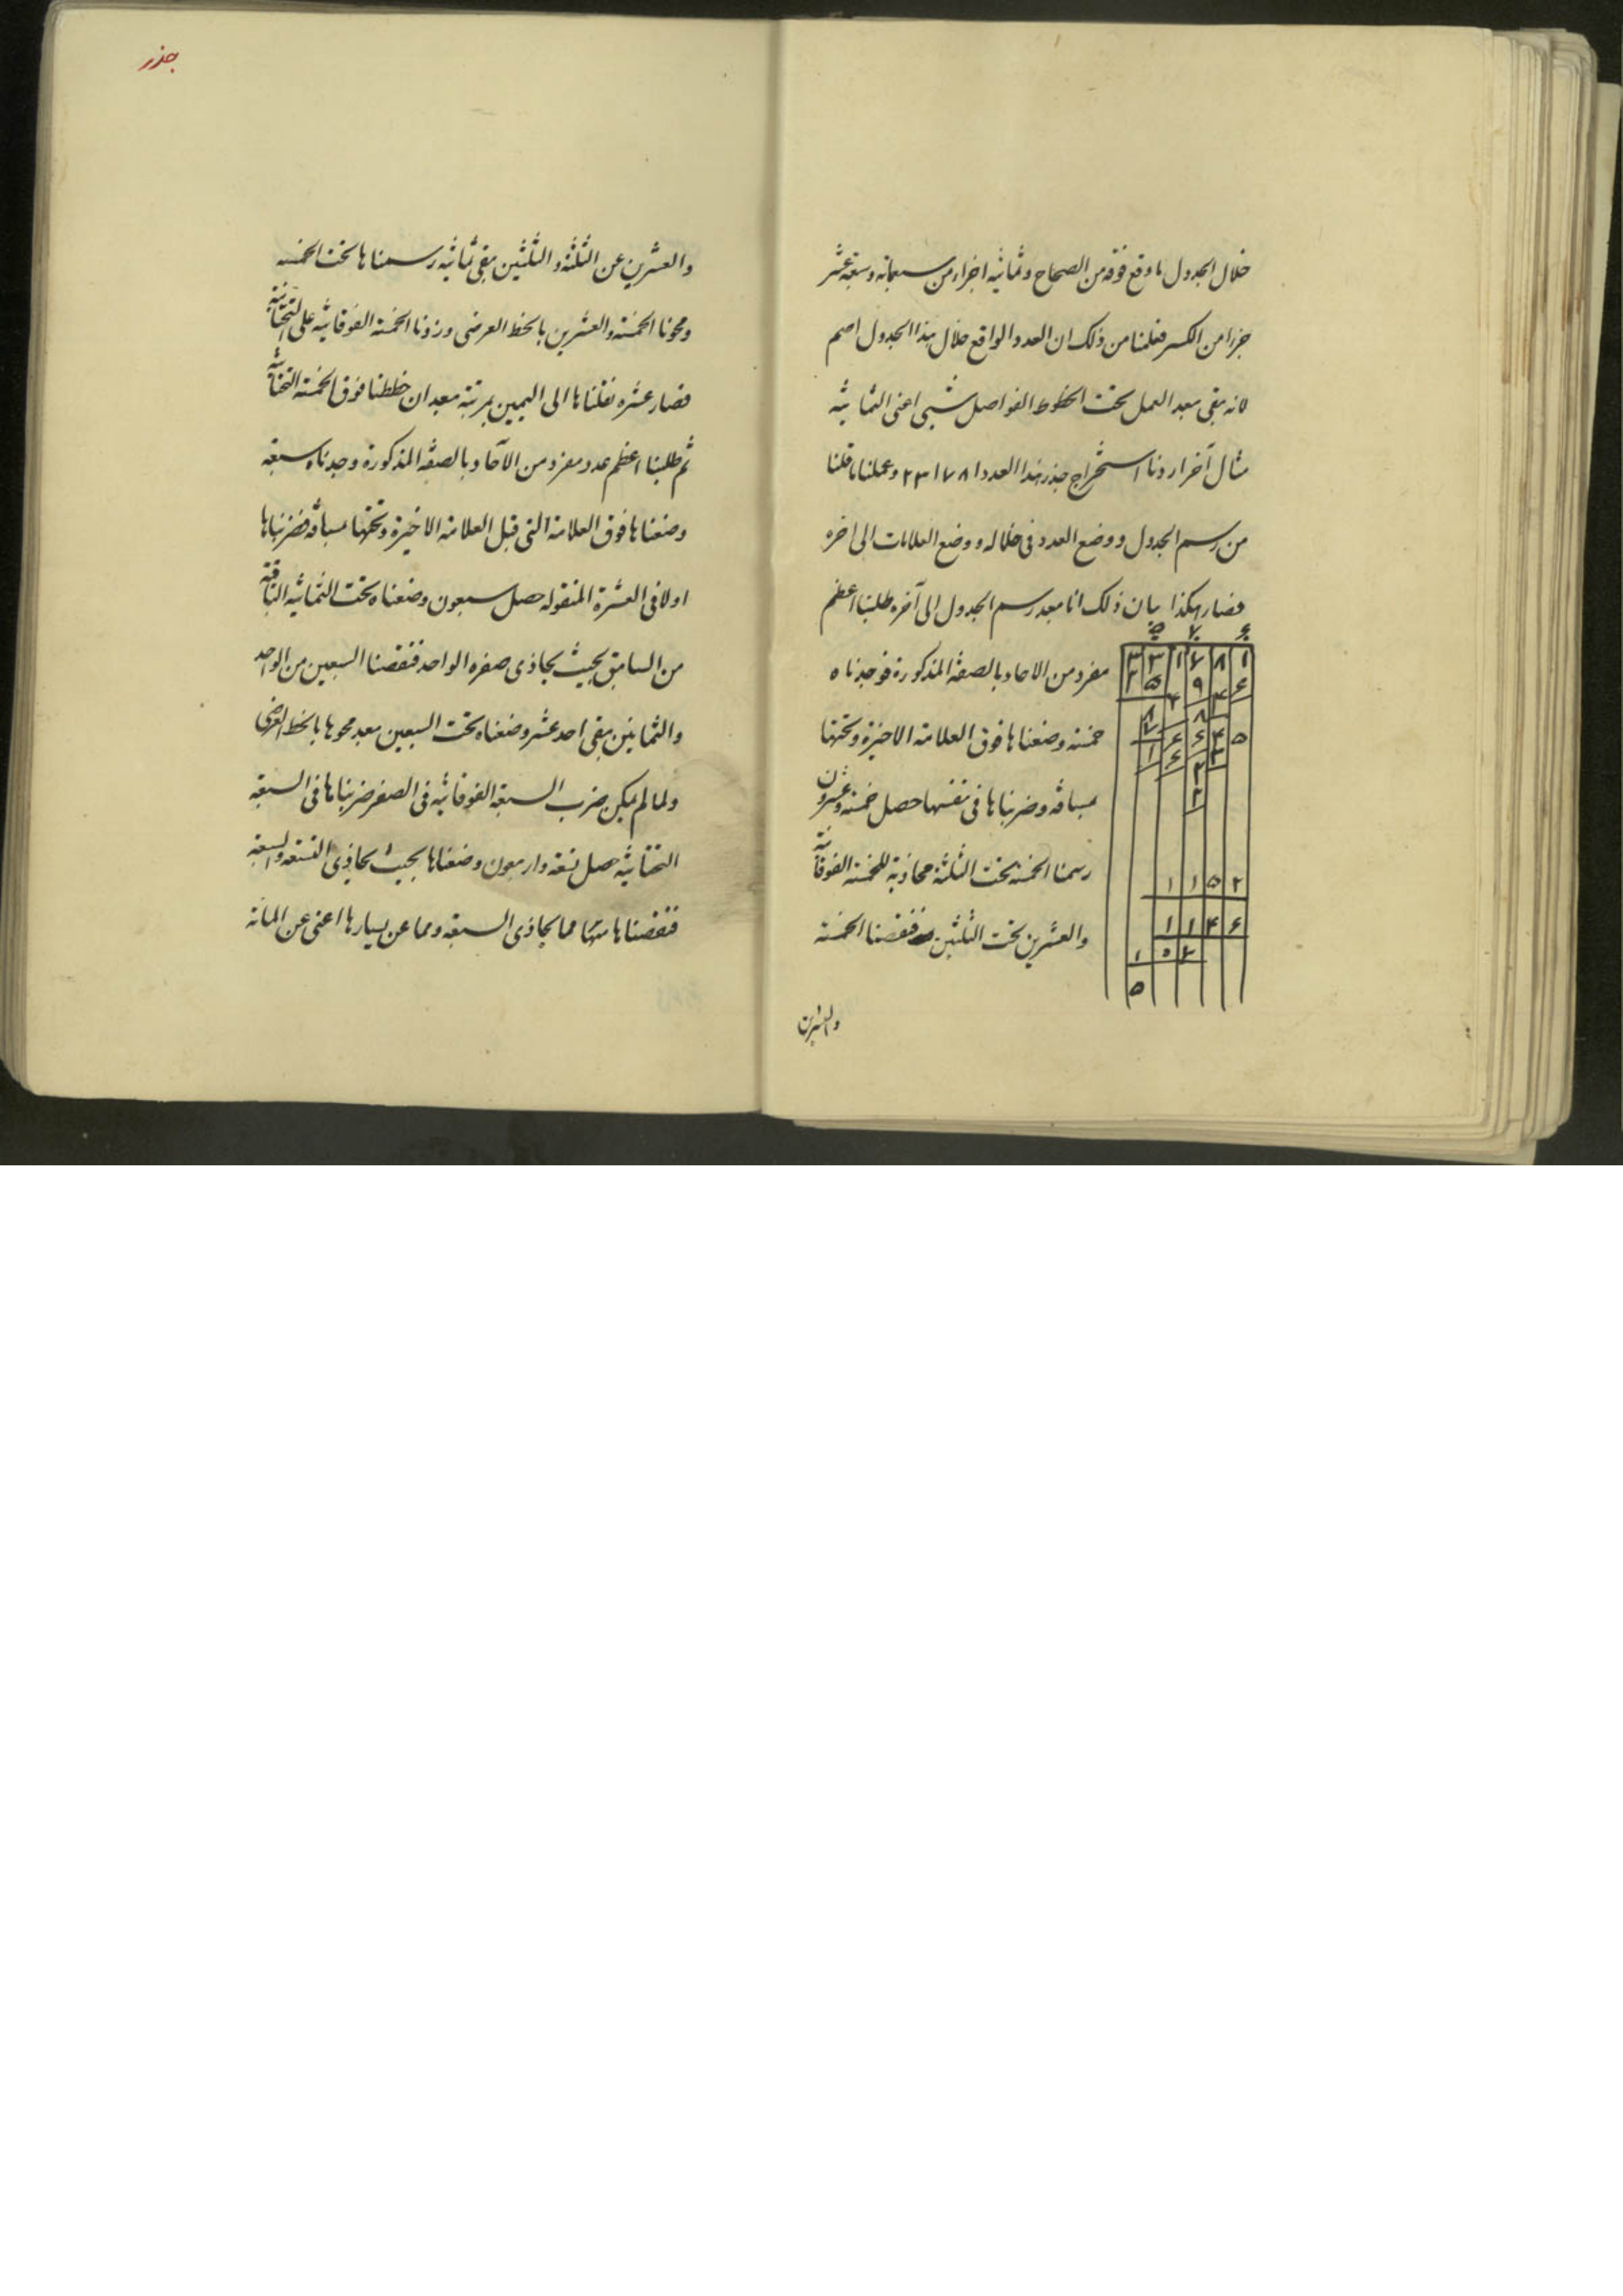 خلال الجدول ما وقع فوقه من الصحاح وثمانية اجزاء من سبعمائة وسبعة عشر
جزءا من الكسر فعلمنا من ذلك ان العدد الواقع خلال هذا الجدول اصم
لانه بقى بعد العمل تحت الخطوط الفواصل شيئ اعنى الثمانية
مثال آخر اردنا استخراج جذر هذا العدد ٣٣١٧٨١ وعملنا ما قلنا
من رسم الجدول ووضع العدد فى خلاله ووضع العلامات الى اخره
فصار هكذا بيان ذلك انا بعد رسم الجدول الى آخره طلبنا اعظم
مفرد من الاحاد بالصفة المذكورة فوجدناه
خمسة وضعناها فوق العلامة الاخيرة وتحتها
بمسافة وضربناها فى نفسها حصل خمسة وعشرون
رسمنا الخمسة تحت الثلثة محاذية للخمسة الفوقانية
والعشرين تحت الثلثين فنقصنا الخمسة
والعشرين
۵ ٧ ۶
٣ ٣ ١ ٧ ٨ ١
٢ ۵ ٩ ۴ ۶
١ ١ ۵ ٢
١ ١ ۴ ۶
١ ٠ ٧
۵
جذر
والعشرين عن الثلثة والثلثين بقى ثمانية رسمناها تحت الخمسة
ومحونا الخمسة والعشرين بالخط العرضى وزدنا الخمسة الفوقانية على التحتانية
فصار عشره نقلناها الى اليمين بمرتبة بعد ان خططنا فوق الخمسة التحتانية
ثم طلبنا اعظم عدد مفرد من الآحاد بالصفة المذكورة وجدناه سبعة
وضعناها فوق العلامة التى قبل العلامة الاخيرة وتحتها بمسافة فضربناها
اولا فى العشرة المنقوله حصل سبعون وضعناه تحت الثمانية الباقية
من السابق بحيث يحاذى صفره الواحد فنقصنا السبعين من الواحد
والثمانين بقى احد عشر وضعناه تحت السبعين بعد محوها بالخط العرضى
ولما لم يمكن ضرب السبعة الفوقانية فى الصفر ضربناها فى السبعة
التحتانية حصل تسعة واربعون وضعناها بحيث يحاذى التسعة السبعة
فنقصناها منها مما يحاذى السبعة ومما عن يسارها اعنى عن المائة